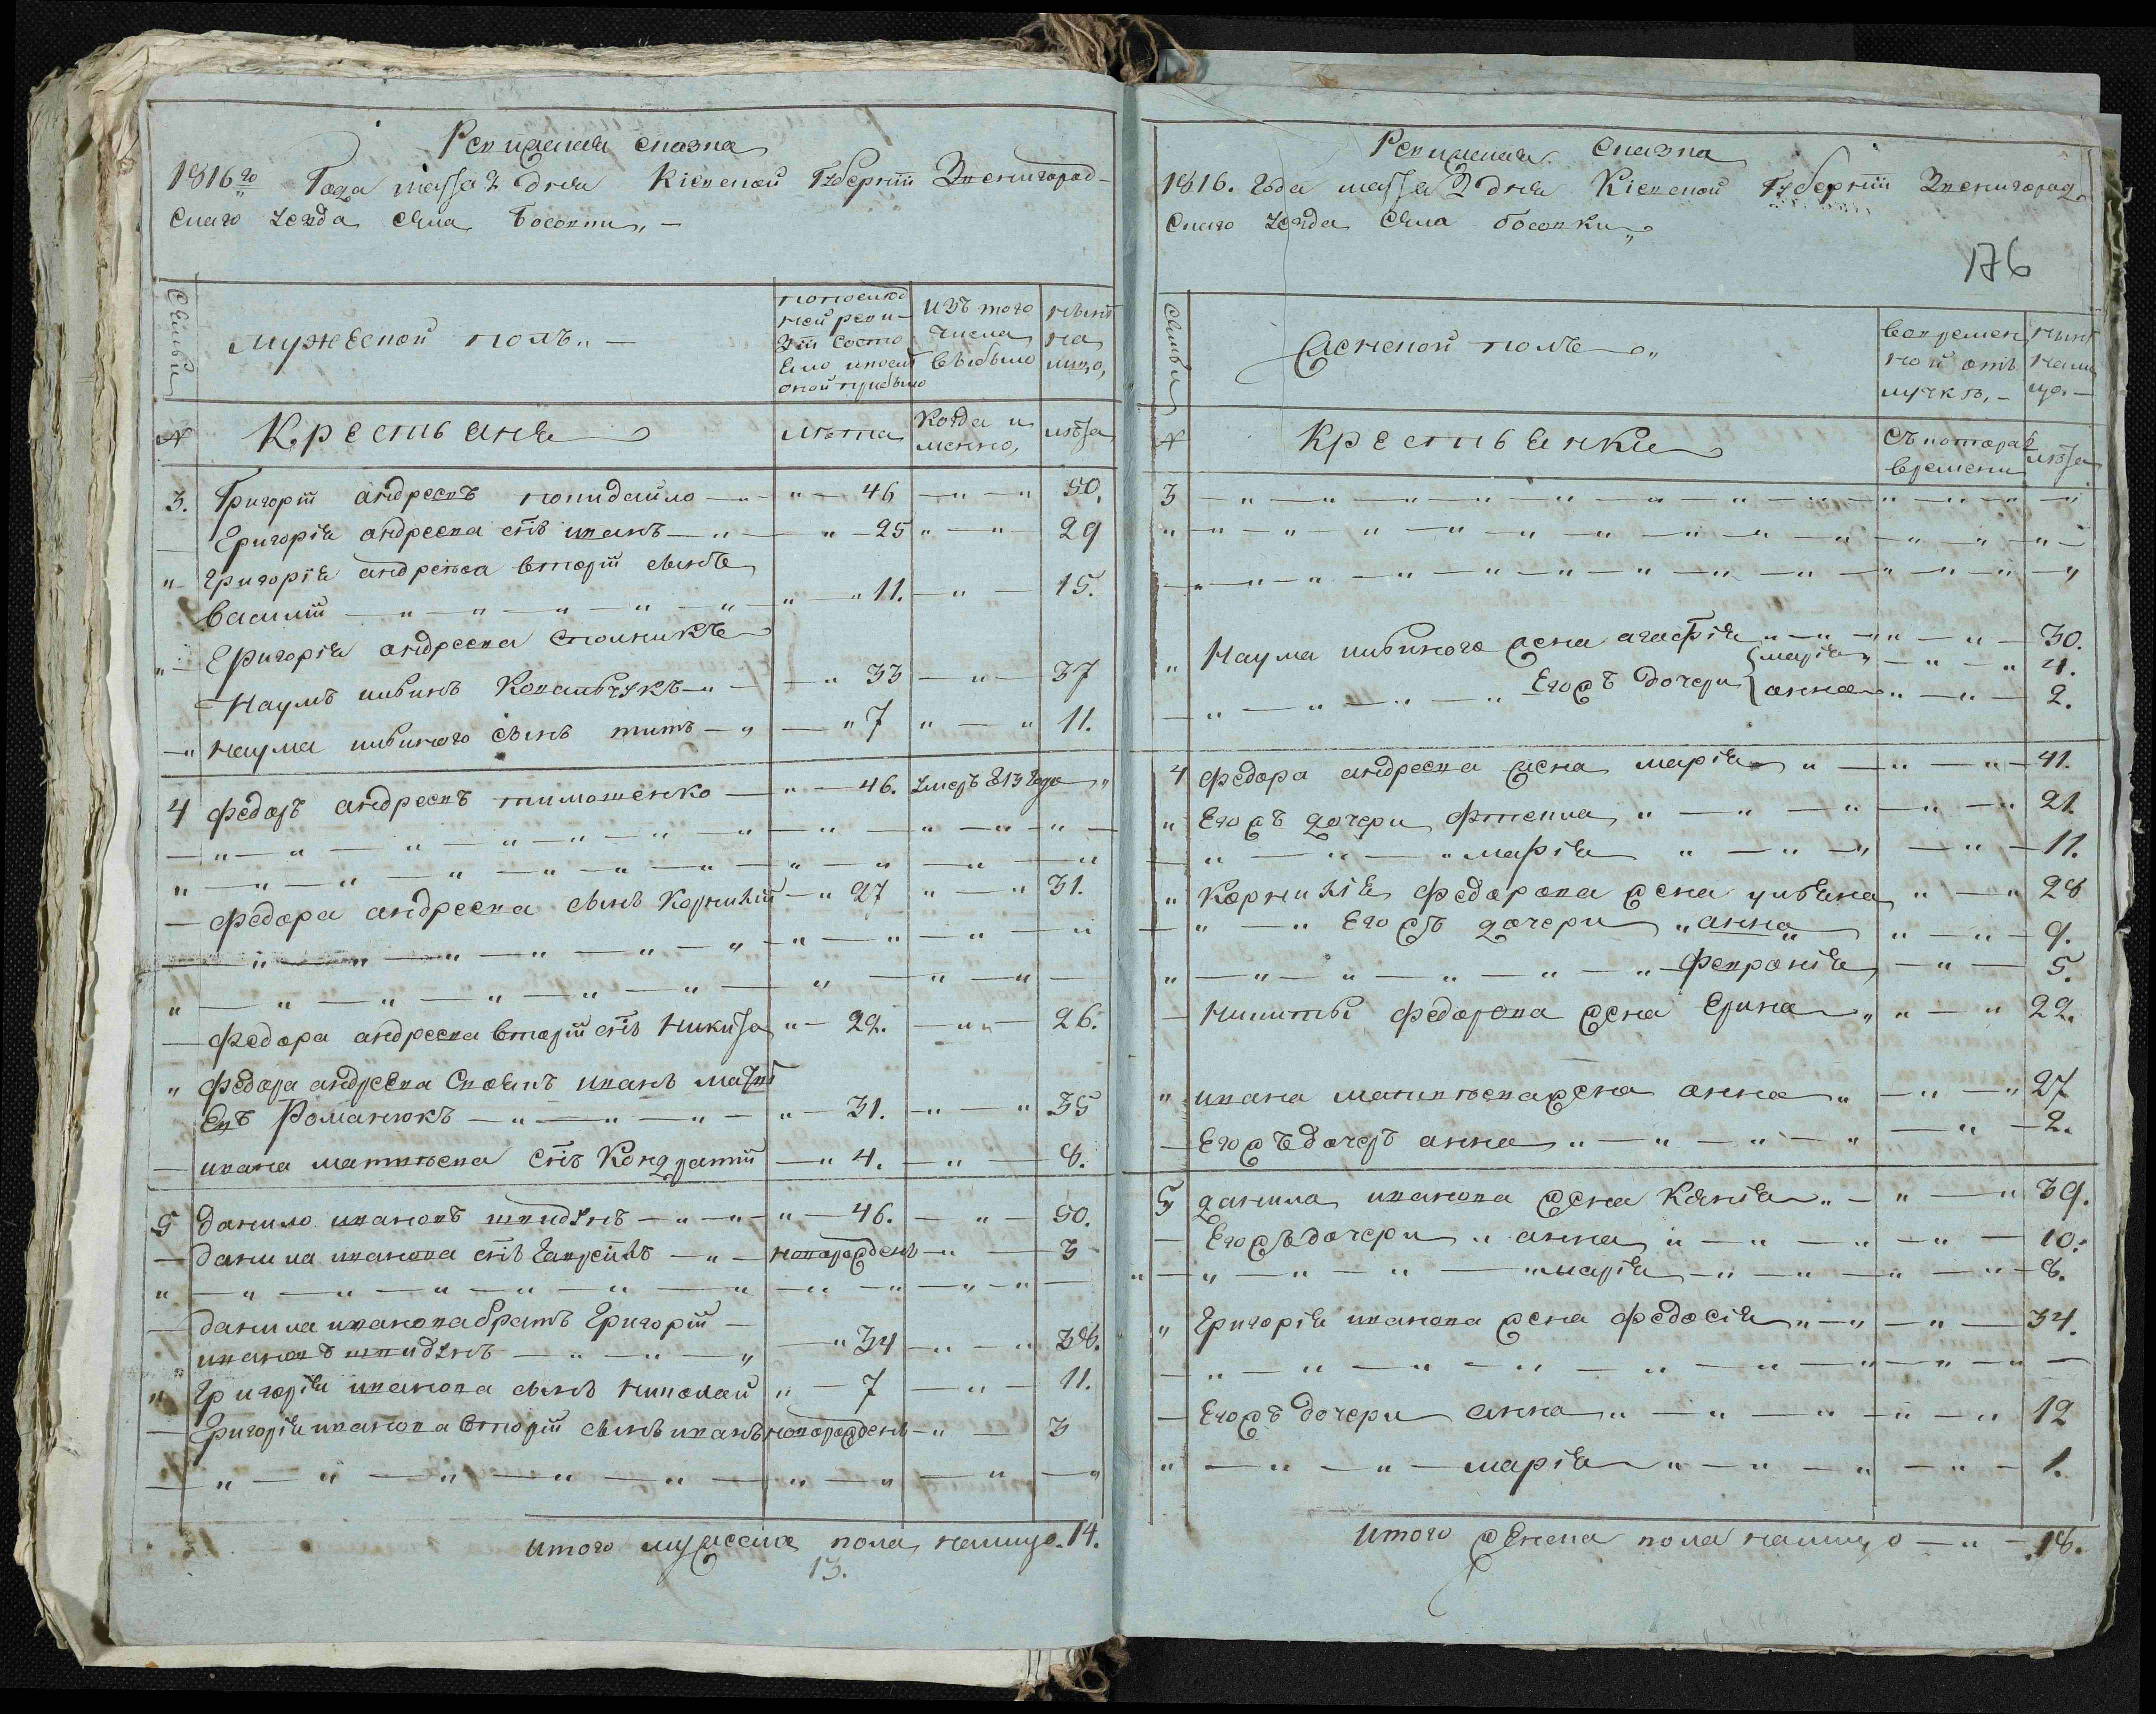 Ревижская сказка
1816го Года маия 2 дня Кіевской Губерніи Звенигород-
скаго уезда села Босовки
Семьи
мужеской полъ
по послѣд
ней реви-
зіи состо
яло и после
оной прибыло
изъ того
числа
выбыло
нынѣ
на
лицо,
№
Крестьяне
лѣта
Когда и
менно,
лѣта
3. Григорій андреевъ 46 50.
Григорія андреева снъ иванъ 25 29
Григорія андреева вторій сынъ
василій 11. 15.
Григорія андреева
Наумъ Ковальчукъ 33 37
наума сынъ титъ 7 11.
4 федоръ андреевъ тимошенко 46. умеръ 813 года
федора андреева сынъ Корнилій 27 31.
федора андреева вторій снъ никита 22. 26.
федора андреева своякъ иванъ матвѣ
евъ Романюкъ 31. 35
ивана матвѣева снъ Кондратій 4. 8.
5 данило ивановъ шпидунъ 46. 50.
данила иванова снъ гаврійлъ новорожденъ 3
данила иванова братъ Григорій
ивановъ шпидунъ 34 38.
григорія иванова сынъ николай 7 11.
Григорія иванова вторій сынъ иванъ новорожденъ 3
итого мужеска пола налицо. 14.
13.
Ревижская Сказка
1816. года маия 2 дня Кіевской Губерніи Звенигород
скаго уезда села босовки
176
семьи
Женской полъ
во времен
ной отъ
лучкѣ,
нынѣ
нали
цо.
№
Крестьянки
съ котораго
времени
лѣта
3
Наума жена агафія 30.
Егожъ дочери марія 4.
анна 2.
4 федора андреева жена марія 41.
Егожъ дочери 21.
марія 11.
Корнилія федорова жена ульяна 28
Егожъ дочери анна 9.
февронія 5.
никиты федорова жена Ерина 22.
ивана матвѣева жена анна 27
Егожъ дочеръ анна 2.
5 данила иванова жена Ксенія 39.
Егожъ дочери анна 10.
марія 8.
Григорія иванова жена федосія 34.
Егожъ дочери анна 12
марія 1.
итого женска пола налицо 18.